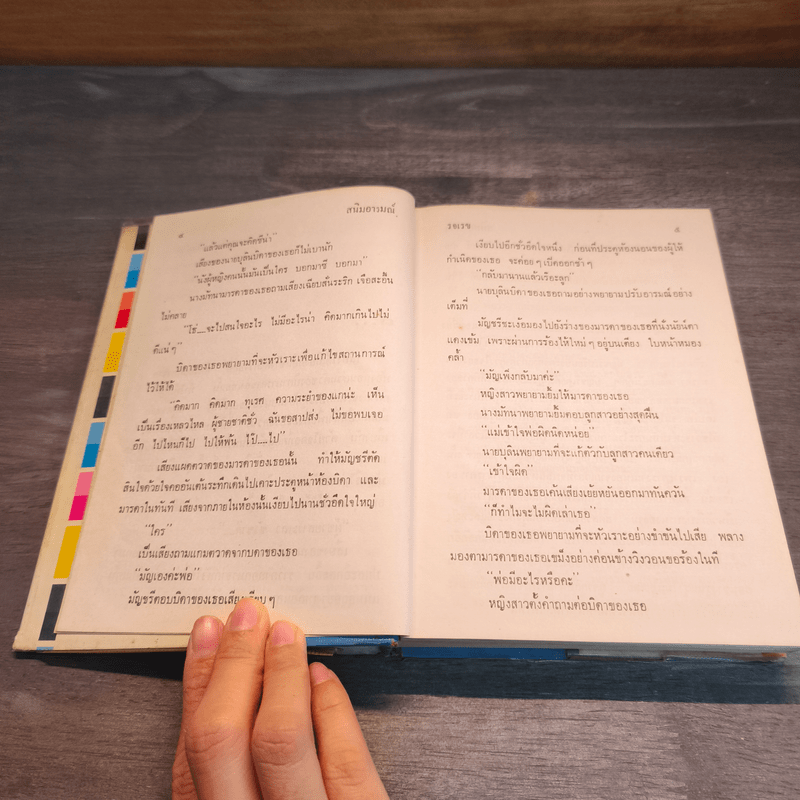 ๘
สนิมอารมณ์
"แล้วแต่คุณจะคิดซีน่า"
เสียงของนายบุลินบิดาของเธอก็ไม่เบานัก
"นังผู้หญิงคนนั้นมันเป็นใคร บอกมาซี บอกมา"
นางมัทนามารดาของเธอถามเสียงเฉียบสั่นระริก เจือสะอื้น
ไม่คลาย
"โธ่....จะไปสนใจอะไร ไม่มีอะไรน่า คิดมากเกินไปไม่
ดีแน่ๆ"
บิดาของเธอพยายามที่จะหัวเราะเพื่อแก้ไขสถานการณ์
ไว้ให้ได้
"คิดมาก คิดมาก ทุเรศ ความระยำของแกน่ะ เห็น
เป็นเรื่องเหลวไหล ผู้ชายชาติชั่ว ฉันขอสาปส่ง ไม่ขอพบเจอ
อีก ไปไหนก็ไป ไปให้พ้น ไป๊.....ไป"
เสียงแผดตวาดของมารดาของเธอนั้น ทำให้มัญชรีตัด
สินใจด้วยใจคออันเต้นระทึกเดินไปเคาะประตูหน้าห้องบิดา และ
มารดาในทันที เสียงจากภายในห้องนั้นเงียบไปนานชั่วอึดใจใหญ่
"ใคร"
เป็นเสียงถามแกมตวาดจากบิดาของเธอ
"มัญเองค่ะพ่อ"
มัญชรีตอบบิดาของเธอเสียงเรียบๆ
รจเรข
๙
เงียบไปอีกชั่วอึดใจหนึ่ง ก่อนที่ประตูห้องนอนของผู้ให้
กำเนิดของเธอ จะค่อยๆ เปิดออกช้าๆ
"กลับมานานแล้วเรอะลูก"
นายบุลินบิดาของเธอถามอย่างพยายามปรับอารมณ์อย่าง
เต็มที่
มัญชรีชะเง้อมองไปยังร่างของมารดาของเธอที่นั่งนัยน์ตา
แดงเข้ม เพราะผ่านการร้องไห้ใหม่ๆ อยู่บนเตียง ใบหน้าหมอง
คล้ำ
"มัญเพิ่งกลับมาค่ะ"
หญิงสาวพยายามยิ้มให้มารดาของเธอ
นางมัทนาพยายามยิ้มตอบลูกสาวอย่างสุดฝืน
"แม่เข้าใจพ่อผิดนิดหน่อย"
นายบุลินพยายามที่จะแก้ตัวกับลูกสาวคนเดียว
"เข้าใจผิด"
มารดาของเธอเค้นเสียงเย้ยหยันออกมาทันควัน
"ก็ทำไมจะไม่ผิดเล่าเธอ"
บิดาของเธอพยายามที่จะหัวเราะอย่างขำขันไปเสีย พลาง
มองตามารดาของเธอเขม็งอย่างค่อนข้างวิงวอนขอร้องในที
"พ่อมีอะไรหรือคะ"
หญิงสาวตั้งคำถามต่อบิดาของเธอ